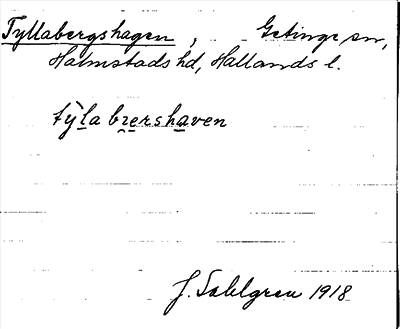 Tyllabergshagen, Getinge sn,
Halmstads hd, Hallands l.
tỳl̲a bræ̲rsha̲ven
J. Sahlgren 1918